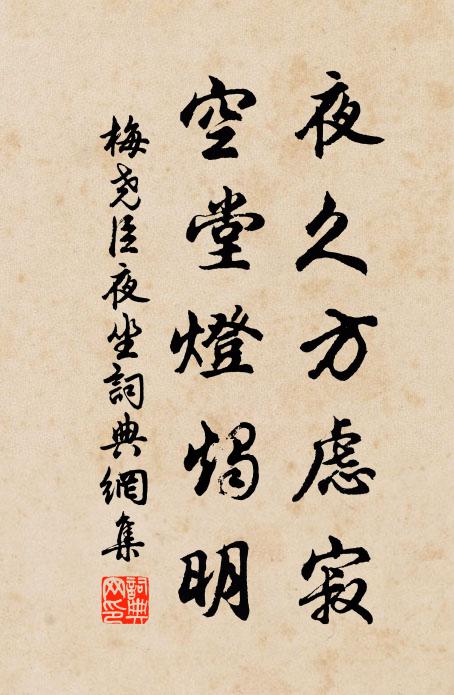 夜久方慮寂
空堂燈燭明
梅尧臣夜坐詞典網集
詞典網印